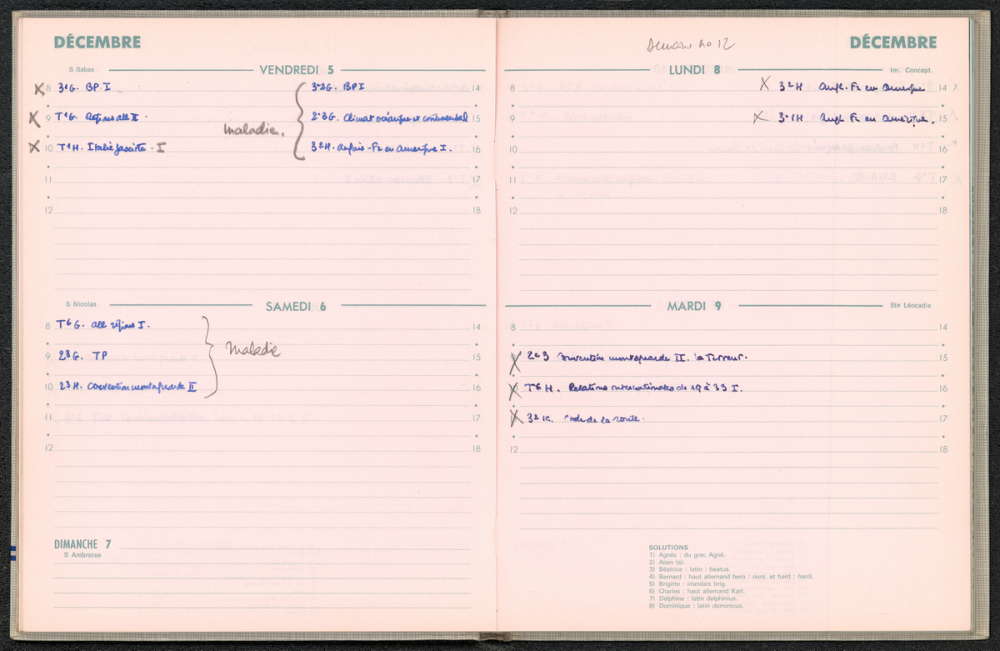 DÉCEMBRE
S Sabas
VENDREDI 5
8 3e1G. BP. I 3e3G. BPI 14
9 T1G. Régions all II. 2e3G. Climat océanique et continental 15
maladie.
10 T1H. Italie fasciste. I 3e2H. anglais-Fr en Amérique I. 16
11 17
12 18
S Nicolas
SAMEDI 6
8 T6G. all régions I. 14
Maladie
9 23G. TP 15
10 23H. Convention montagnarde II 16
11 17
12 18
DIMANCHE 7
S Ambroise
Semaine no 12
DÉCEMBRE
LUNDI 8
Im. Concept.
8 X 3e2H Angl. Fr en Amérique 14
9 X 3e1H Angl Fr en Amérique. 15
10 16
11 17
12 18
MARDI 9
Ste Léocadie
8 14
9 X 2e3 Convention montagnarde II. la Terreur. 15
10 X T6H. Relations internationales de 19 à 39 I. 16
11 X code de la route. 17
12 18
SOLUTIONS
1) Agnès : du grec Agné.
2) Alain (s).
3) Béatrice : latin : beatus.
4) Bernard : haut allemand bero : ours, et hard : hardi.
5) Brigitte : irlandais brig.
6) Charles : haut allemand Karl.
7) Delphine : latin delphinius.
8) Dominique : latin dominicus.